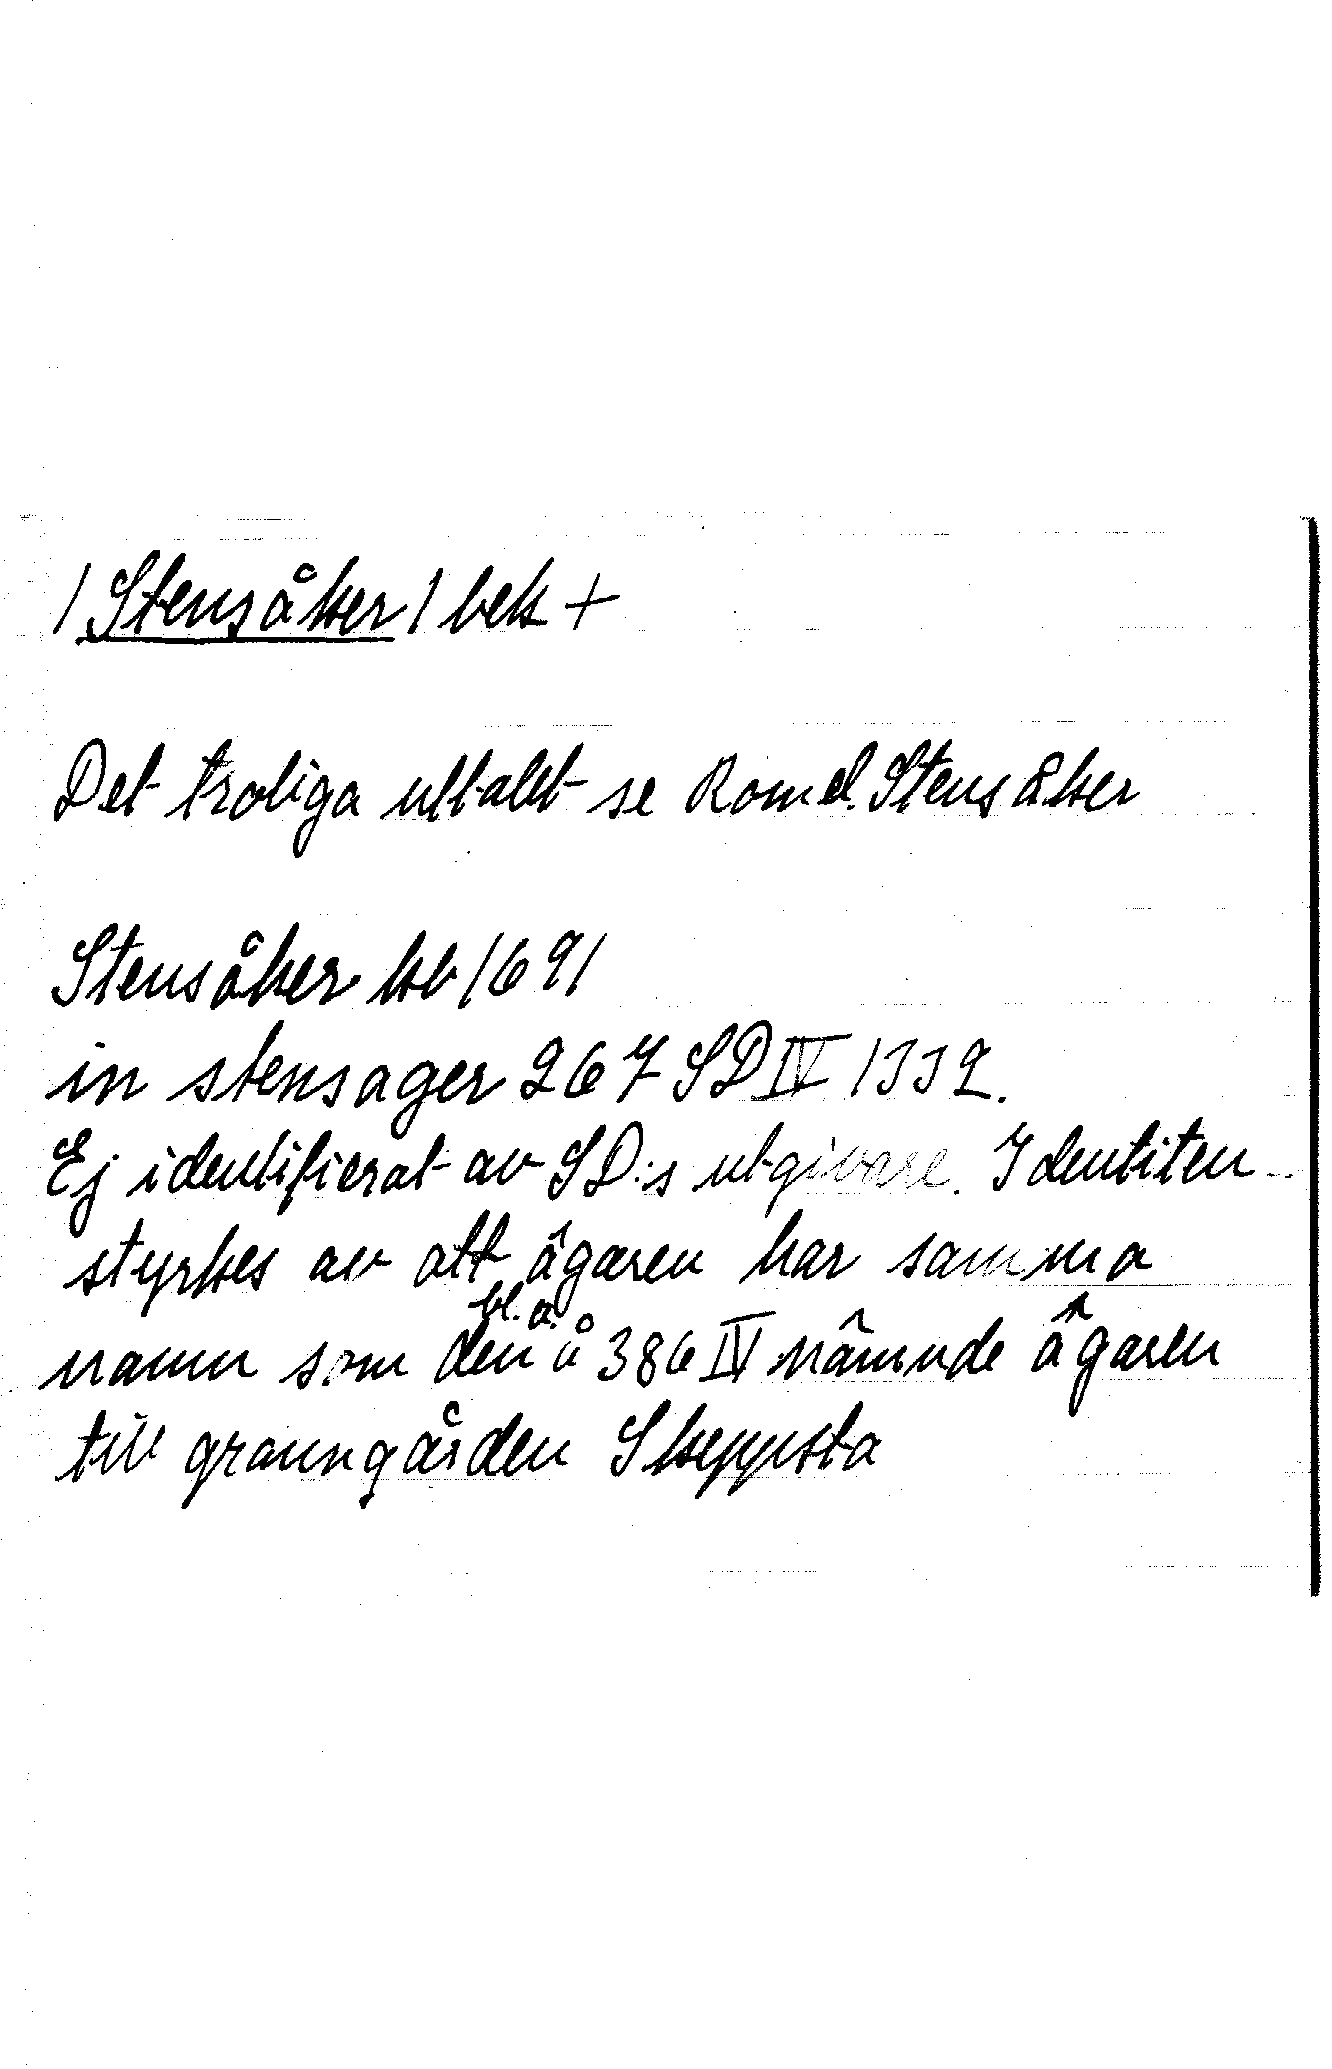 /Stensåker/ bek +
Det troliga uttalet se Romel. Stensåker
Stensåker kb 1691
in stensager 267 SD IV 1332.
Ej identifierat av SD:s utgivare. Identiten
styrkes av att ägaren har samma
bl. a.
namn som den å 386 IV nämnde ägaren
till granngården Skeppsta